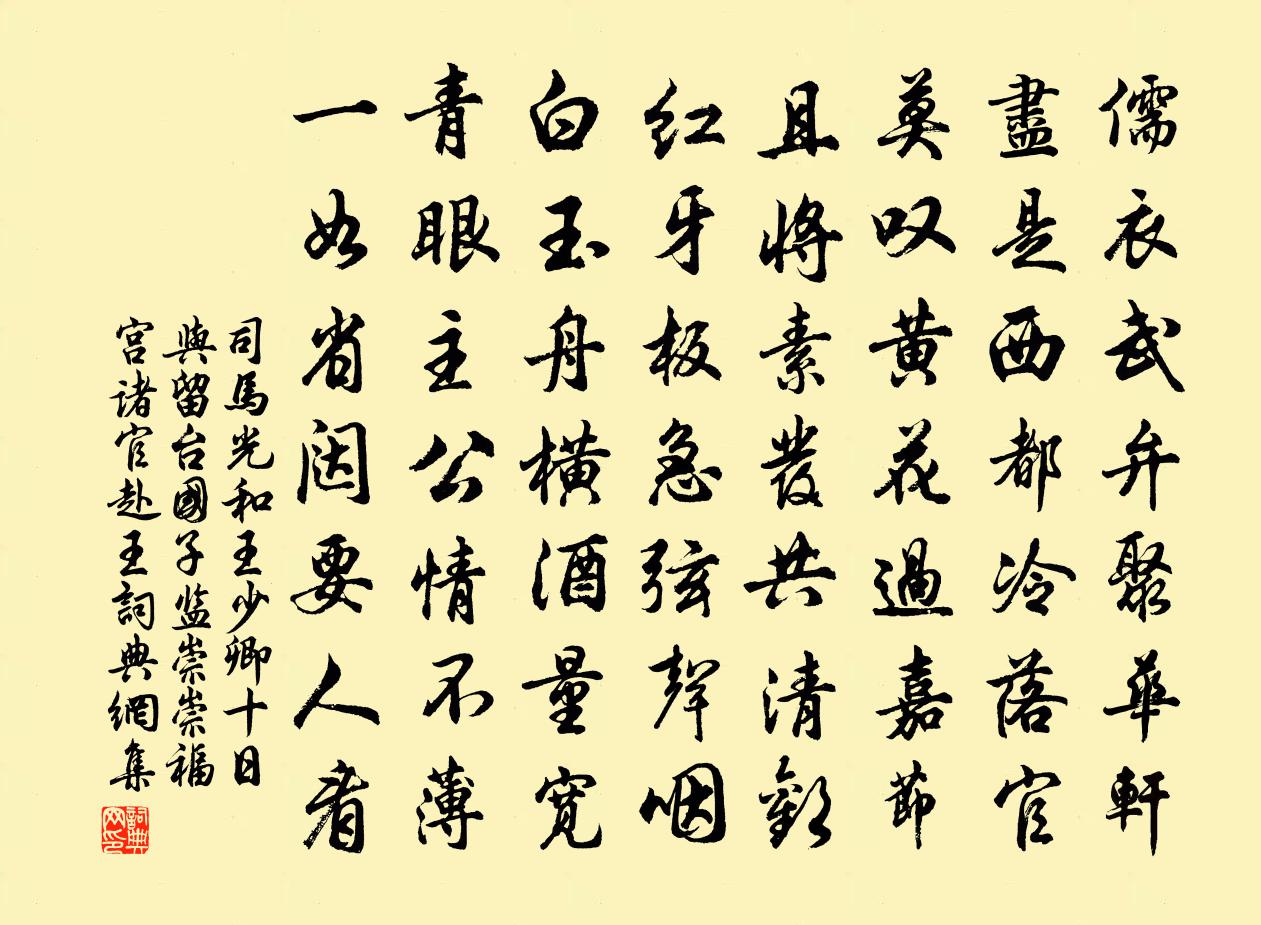 儒衣武弁聚華軒
盡是西都冷落官
莫叹黄花過嘉節
且將素發共清歡
红牙板急弦聲咽
白玉舟橫酒量寬
青眼主公情不薄
一如省闼要人看
司馬光和王少卿十日
與留台國子监崇崇福
宮诸官赴王詞典網集
詞典网印